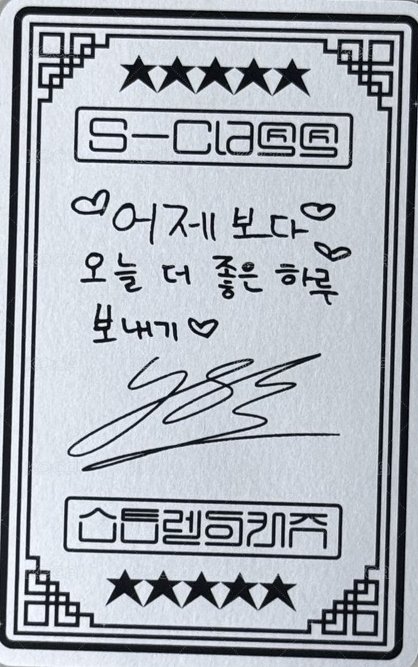 S-Class
어제 보다
오늘 더 좋은 하루
보내기
스트레이키즈